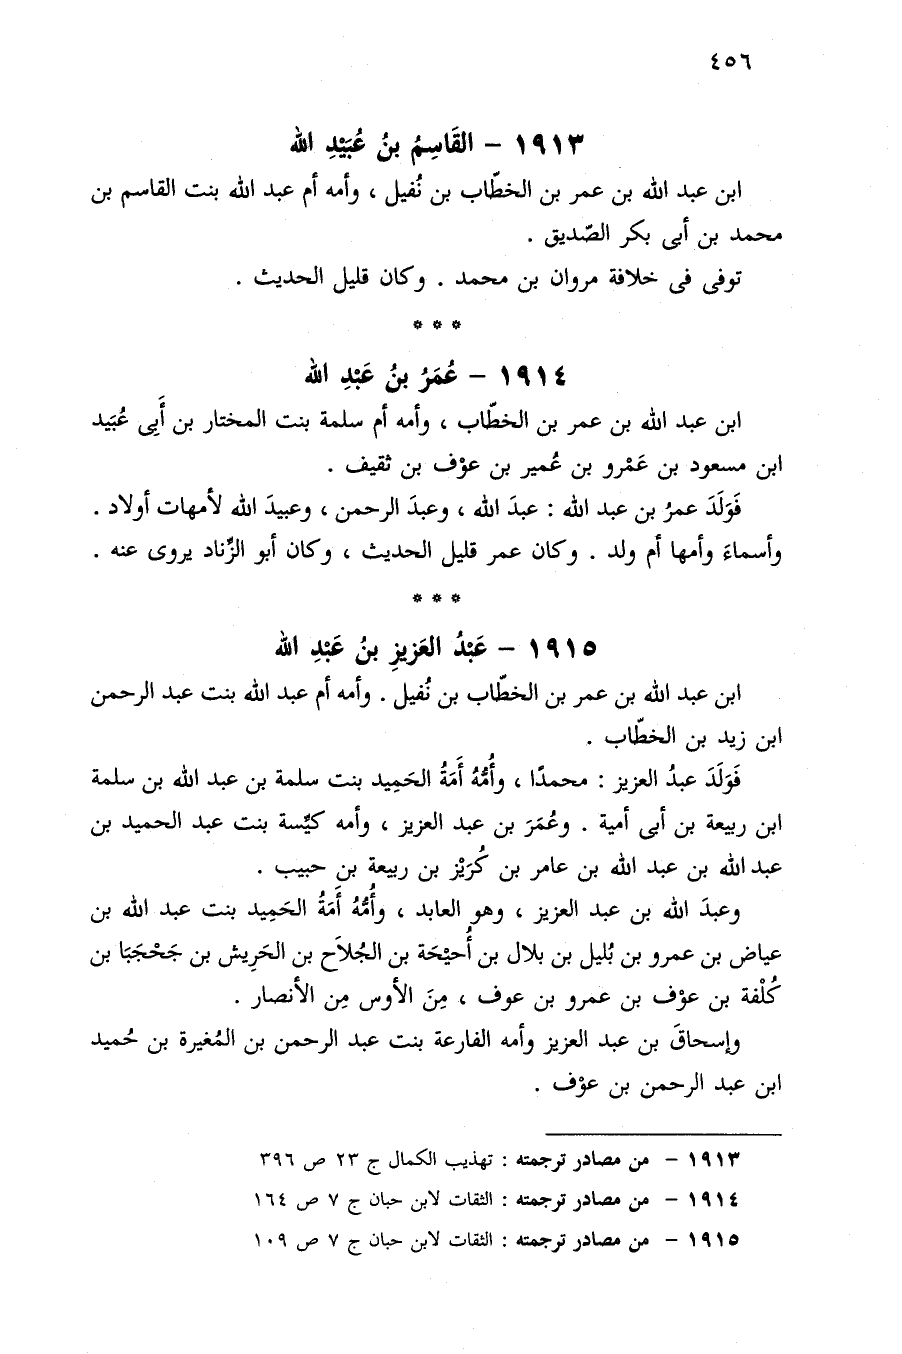 ٤٥٦
١٩١٣ - القَاسِمُ بنُ عُبَيْدِ الله
ابن عبد الله بن عمر بن الخطّاب بن نُفيل ، وأمه أم عبد الله بنت القاسم بن
محمد بن أبى بكر الصّديق .
توفى فى خلافة مروان بن محمد . وكان قليل الحديث .
* * *
١٩١٤ - عُمَرُ بنُ عَبْدِ الله
ابن عبد الله بن عمر بن الخطّاب ، وأمه أم سلمة بنت المختار بن أَبِى عُبَيد
ابن مسعود بن عَمْرو بن عُمير بن عوْف بن ثقيف .
فَوَلَدَ عمرُ بن عبد الله : عبدَ الله ، وعبدَ الرحمن ، وعبيدَ الله لأمهات أولاد .
وأسماءَ وأمها أم ولد . وكان عمر قليل الحديث ، وكان أبو الزِّناد يروى عنه .
* * *
١٩١٥ - عَبْدُ العَزيزِ بنُ عَبْدِ الله
ابن عبد الله بن عمر بن الخطّاب بن نُفيل . وأمه أم عبد الله بنت عبد الرحمن
ابن زيد بن الخطّاب .
فَوَلَدَ عبدُ العزيز : محمدًا ، وأُمُّهُ أَمَةُ الحَمِيد بنت سلمة بن عبد الله بن سلمة
ابن ربيعة بن أبى أمية . وعُمَرَ بن عبد العزيز ، وأمه كيِّسة بنت عبد الحميد بن
عبد الله بن عبد الله بن عامر بن كُرَيْز بن ربيعة بن حبيب .
وعبدَ الله بن عبد العزيز ، وهو العابد ، وأُمُّهُ أَمَةُ الحَمِيد بنت عبد الله بن
عياض بن عمرو بن بُليل بن بلال بن أُحيْحَة بن الجُلاَح بن الحَرِيش بن جَحْجَبَا بن
كُلْفة بن عوْف بن عمرو بن عوف ، مِنَ الأوس مِن الأنصار .
وإسحاقَ بن عبد العزيز وأمه الفارعة بنت عبد الرحمن بن المُغيرة بن حُميد
ابن عبد الرحمن بن عوْف .
١٩١٣ - من مصادر ترجمته : تهذيب الكمال ج ٢٣ ص ٣٩٦
١٩١٤ - من مصادر ترجمته : الثقات لابن حبان ج ٧ ص ١٦٤
١٩١٥ - من مصادر ترجمته : الثقات لابن حبان ج ٧ ص ١٠٩